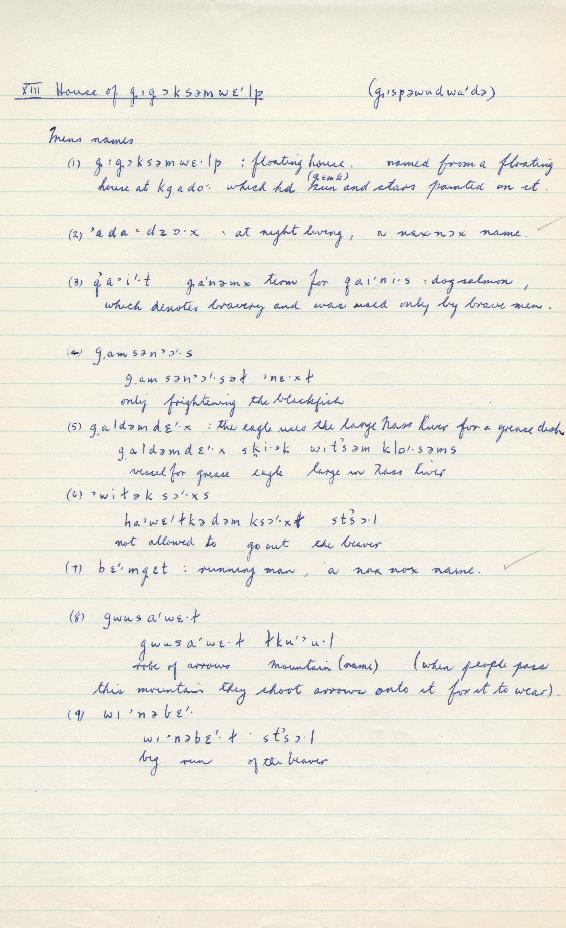 XIII House of g.ɩgɔksəmwɛ·'lp (g.ɩspəwudwa'də)
Mens names
(1) g.ɩgɔksəmwɛ·lp : floating house. named from a floating
(gɛmk)
house at kgado· which hd sun and stars painted on it.
(2) 'ada=dzɔ·x : at night living, a naxnɔx name.
(3) g'a'i'·t g.a'nəmx term for qai'ni·s : dog salmon,
which denotes bravery and was used only by brave men.
(4) g.amsən'ɔ'·s
g.amsən'ɔ'·səɬ 'nɛ·xɬ
only frightening the blackfish
(5) g.aldəmdɛ'·x : the eagle uses the large Nass River for a grease dish
galdəmdɛ'·x sk̩i·ək wit'səm klo'·səms
vessel for grease eagle large in Nass River
(6) 'witək sɔ'·xs
ha'wɛ'ɬkədəm ksɔ'·xɬ st'sɔ·l
not allowed to go out the beaver
(7) bɛ'·mgɛt : running man, a nax nox name.
(8) gwusa'wɛ·ɬ
gwusa'wɛ·ɬ ɬku''u·l
robe of arrows mountain (name) (when people pass
this mountain they shoot arrows onto it for it to wear).
(9) wɩ'nəbɛ'·
wɩ'nəbɛ'·ɬ st'sɔ·l
big run of the beaver